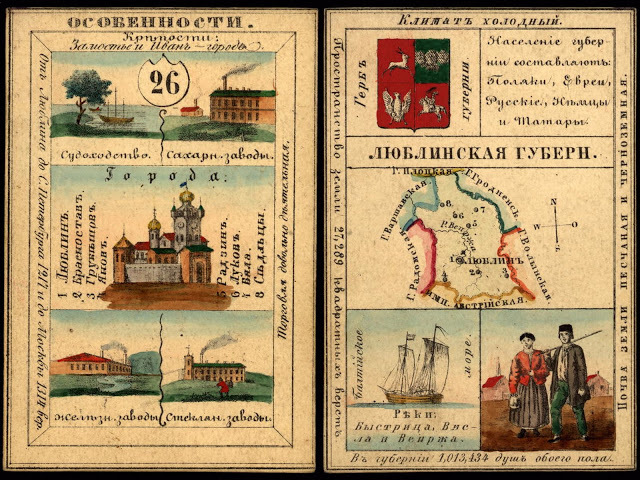 ОСОБЕННОСТИ.
Крѣпости:
Замостье и Иванъ-городъ.
26
Судоходство. Сахарн. заводы.
Города:
1 ЛЮБЛИНЪ.
2 Красноставъ.
3 Грубѣшовъ.
4 Яновъ.
5 Радзинъ.
6 Луковъ.
7 Бяла.
8 Сѣдлецъ.
Желѣзн. заводы Стеклян. заводы.
Отъ Люблина до С. Петербурга 1291 и до Москвы 1214 вер.
Торговля довольно дѣятельная.
Климатъ холодный.
Гербъ
губерніи
Населеніе губер-
ніи составляютъ:
Поляки, Евреи,
Русскіе, Нѣмцы
и Татары.
ЛЮБЛИНСКАЯ ГУБЕРН.
Г. Плоцкая.
Г. Гродненск.
Г. Варшавская.
Г. Волынская.
Г. Радомская.
Имп. Австрійская.
Р. Вепржа.
ЛЮБЛИНЪ.
N
W O
S
Балтійское
море.
РѢКИ:
Быстрица, Вис-
ла и Вепржа.
Пространство земли 27,289 квадратныхъ верстъ
Почва земли песчаная и черноземная.
Въ губерніи 1,013,434 душъ обоего пола.